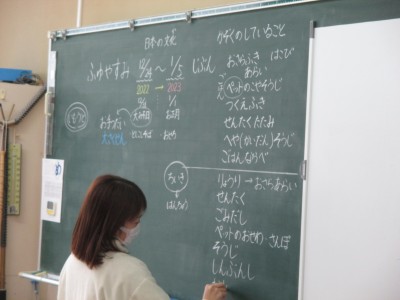 日本の文化
ふゆやすみ 12/24 〜 1/5
2022 → 2023
12/31 1/1
大みそか お正月
おせち
お手つだい
大そうじ
じぶん
かぞくのしていること
おさらふき はこび
あらい
ペットのごやそうじ
つくえふき
せんたくたたみ
へや(かいだん)そうじ
ごはんならべ
ちいき
りょうり → おさらあらい
せんたく
ごみだし
ペットのおせわ-さんぽ
そうじ
しんぶんし